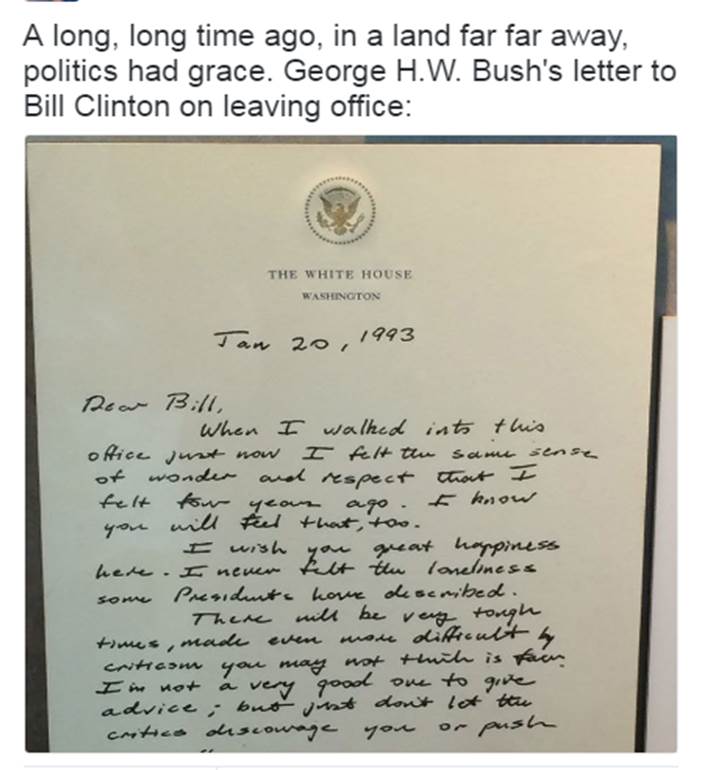 A long, long time ago, in a land far far away,
politics had grace. George H.W. Bush's letter to
Bill Clinton on leaving office:
THE WHITE HOUSE
WASHINGTON
Jan 20, 1993
Dear Bill,
When I walked into this
office just now I felt the same sense
of wonder and respect that I
felt four years ago. I know
you will feel that, too.
I wish you great happiness
here. I never felt the loneliness
some Presidents have described.
There will be very tough
times, made even more difficult by
criticism you may not think is fair.
I'm not a very good one to give
advice; but just don't let the
critics discourage you or push